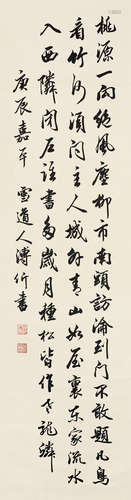 桃源一向絕風塵柳市南頭訪淪到門不敢題凡鳥
看竹何須問主人城外青山如屋裏東家流水
入西隣閉戶著書多歲月種松皆作老龍鱗
庚辰嘉平 雪道人溥伒書